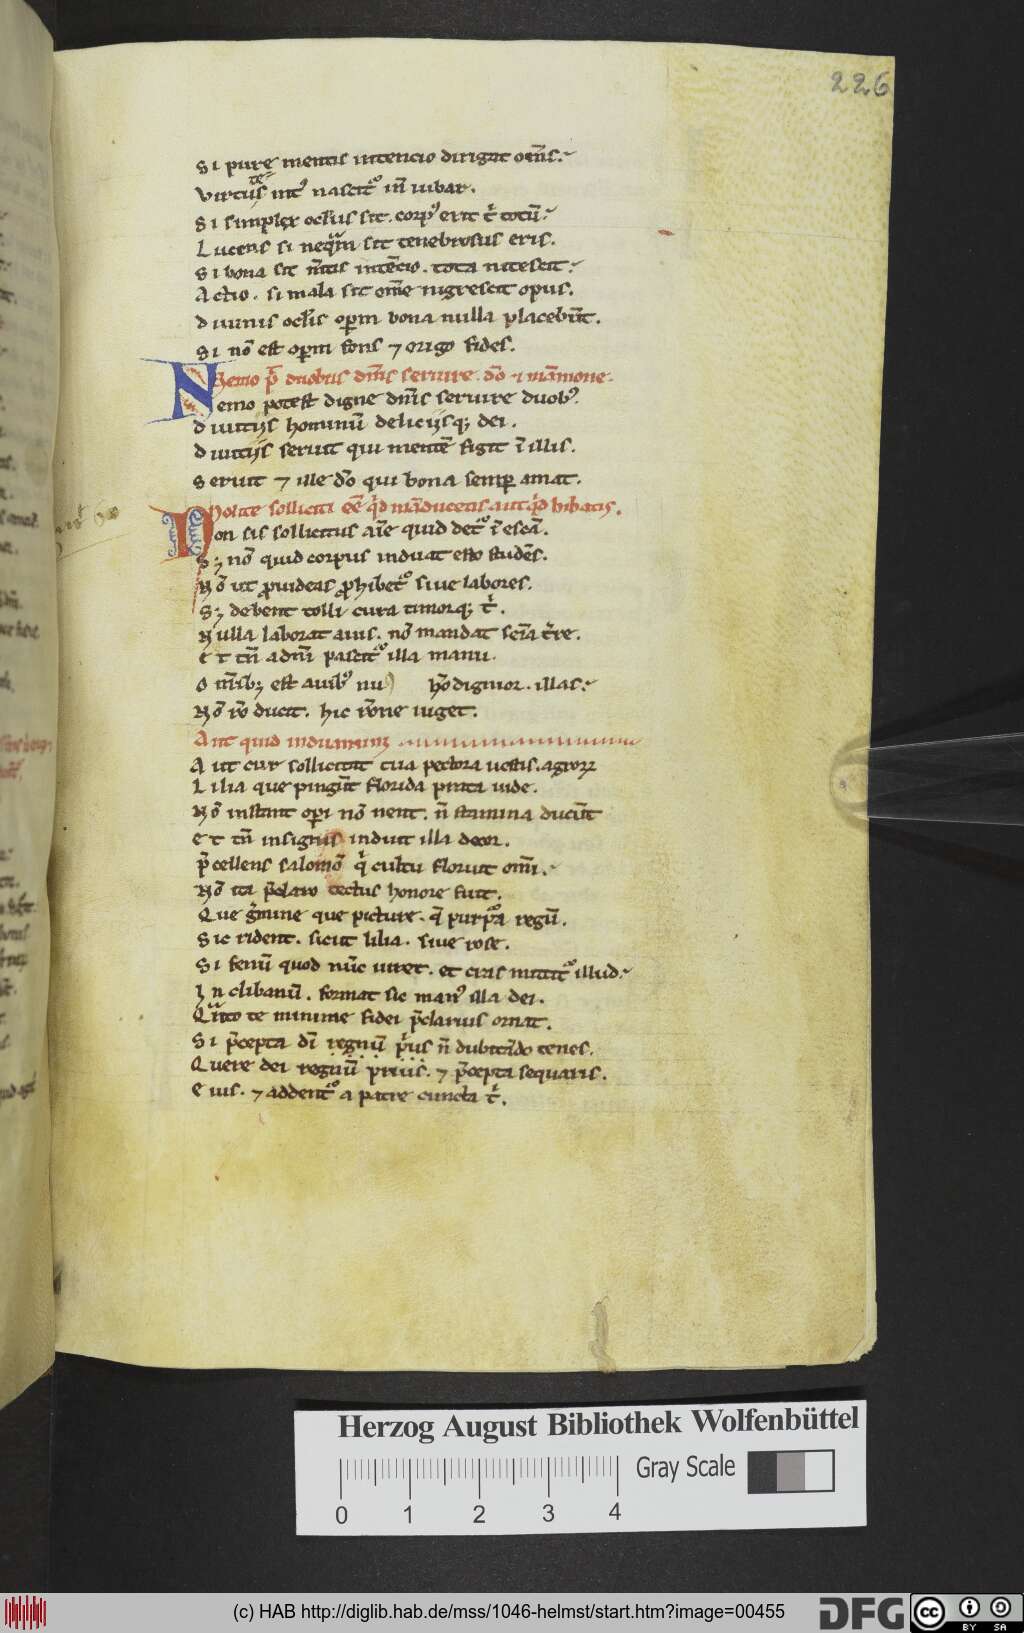 226
Si pure mentis intencio dirigat om̅s.
Virtutes int᷒ nascit᷒ in̅ iubar.
Si simplex oculus sit. corp᷒ erit t̅ totu̅.
Lucens si nequam sit tenebrosus eris.
Si bona sit m̅tis inte̅cio. tota nitescit.
Actio. si mala sit om̅e nigrescit opus.
diuinis oculis operm bona nulla placebu̅t.
Si no̅ est operm fons ⁊ origo fides.
Nemo p̅t duobus dn̅is seruire. d̅o ⁊ ma̅mone.
Nemo potest digne dn̅is seruire duob᷒.
diuitijs hominu̅ delicijsq; dei.
diuitijs seruit qui mente̅ figit i̅ illis.
Seruit ⁊ ille d̅o qui bona semꝑ amat.
Nolite solliciti e̅e̅ qͥd ma̅ducetis aut qͥd bibatis.
Non sis sollicitus ai̅e quid det᷒ i̅ esca̅.
Sꝫ no̅ quid corpus induat esto stude̅s.
No̅ ut ꝓuideas ꝓhibet᷒ siue labores.
Sꝫ debent tolli cura timorq; t̅.
Nulla laborat auis. no̅ mandat semi̅a t̅re.
Et tn̅ ad n̅i pascit᷒ illa manu.
Om̅ibꝫ est auib᷒ nu h̅o dignior. illas.
No̅ r̅o ducit. hic r̅one uiget.
Aut quid induamini
Aut cur sollicitat tua pectora uestis. agroꝝ
Lilia que pingu̅t florida prata uide.
No̅ instant oꝑi no̅ nent. n̅ stamina ducu̅t
Et tn̅ insignis induit illa decor.
p̅cellens salomo̅ qͥ cultu floruit om̅i.
No̅ ita p̅claro tectus honore fuit.
Que g̅mine que picture. q̅ purpᷓa regu̅.
Sic rident. sicut lilia. siue rose.
Si fenu̅ quod nu̅c uiret. et cras mittit᷒ illud.
In clibanu̅. format sic man᷒ illa dei.
Qᷓnto te minime fidei p̅clarius ornat.
Si p̅cepta di̅ regnu̅ pͥus n̅ dubita̅do tenes.
Quere dei regnu̅ prius. ⁊ p̅cepta sequaris.
Eius. ⁊ addent᷒ a patre cuncta t̅.
Herzog August Bibliothek Wolfenbüttel
Gray Scale
0 1 2 3 4
(c) HAB http://diglib.hab.de/mss/1046-helmst/start.htm?image=00455
DFG
cc
BY SA